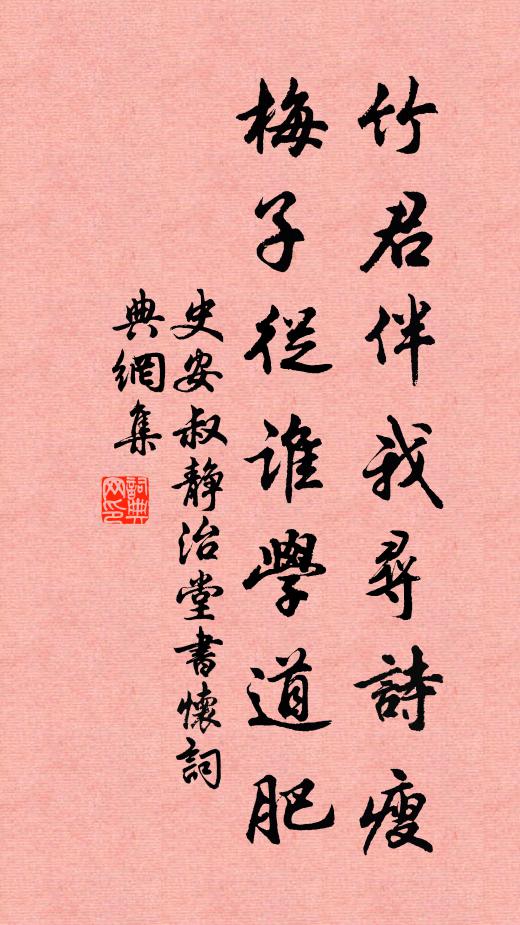 竹君伴我尋詩瘦
梅子從誰學道肥
史安叔靜治堂書懷詞
典網集
詞典網印